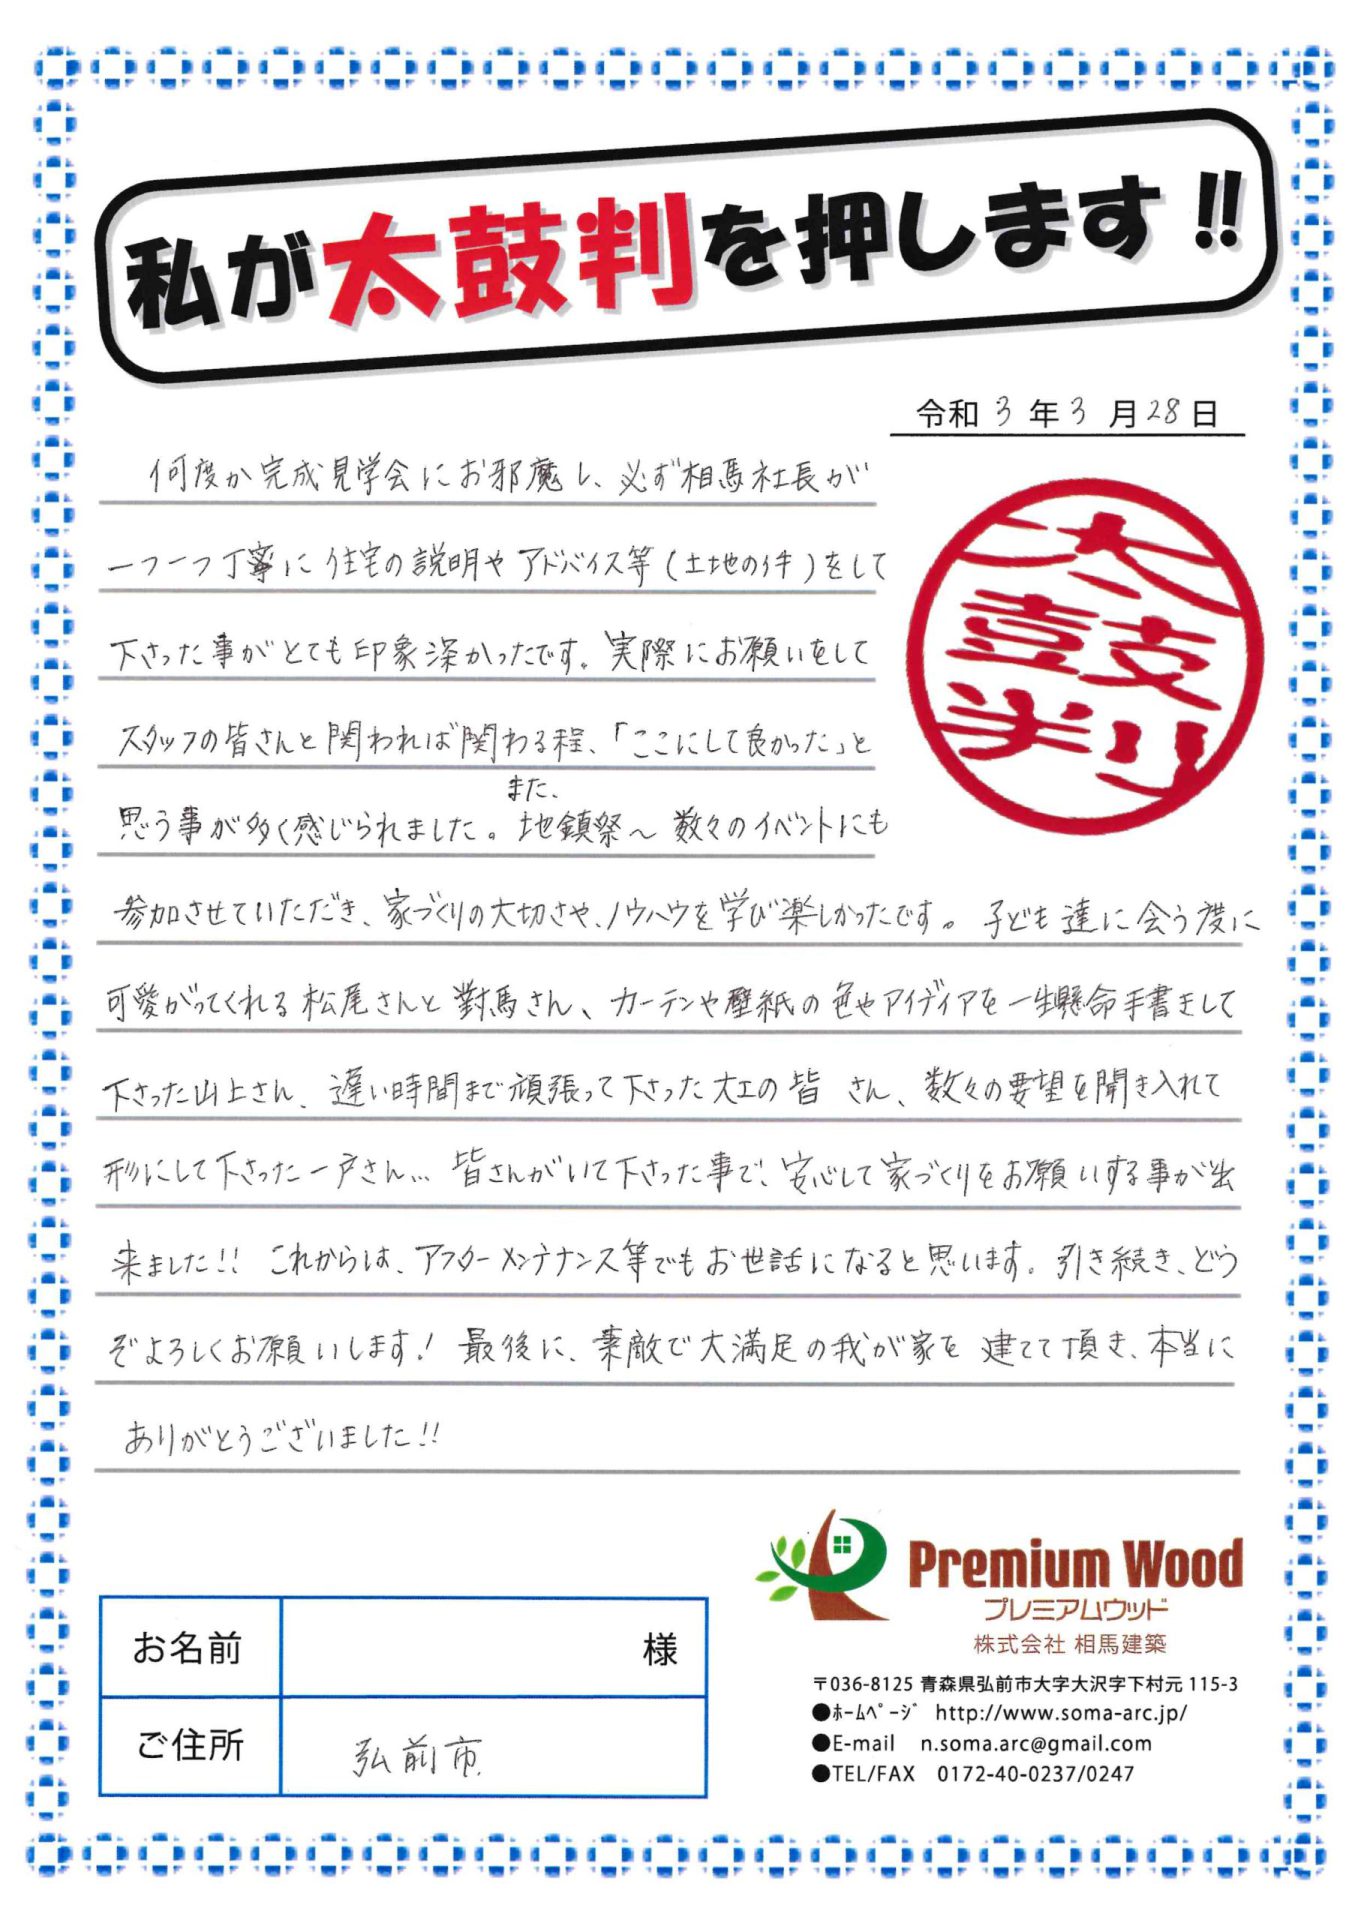 私が太鼓判を押します!!
令和 3 年 3 月 28 日
何度か完成見学会にお邪魔し、必ず相馬社長が
一つ一つ丁寧に住宅の説明やアドバイス等(土地の件)をして
下さった事がとても印象深かったです。実際にお願いをして
スタッフの皆さんと関われば関わる程、「ここにして良かった」と
また、
思う事が多く感じられました。地鎮祭～数々のイベントにも
太鼓判
参加させていただき、家づくりの大切さや、ノウハウを学び楽しかったです。子ども達に会う度に
可愛がってくれる松尾さんと對馬さん、カーテンや壁紙の色やアイディアを一生懸命手書きして
下さった山上さん、遅い時間まで頑張って下さった大工の皆さん、数々の要望を聞き入れて
形にして下さった一戸さん… 皆さんがいて下さった事で、安心して家づくりをお願いする事が出
来ました!! これからは、アフターメンテナンス等でもお世話になると思います。引き続き、どう
ぞよろしくお願いします! 最後に、素敵で大満足の我が家を建てて頂き、本当に
ありがとうございました!!
Premium Wood
プレミアムウッド
株式会社 相馬建築
お名前 様
ご住所 弘前市
〒036-8125 青森県弘前市大字大沢字下村元 115-3
●ﾎｰﾑﾍﾟｰｼﾞ http://www.soma-arc.jp/
●E-mail n.soma.arc@gmail.com
●TEL/FAX 0172-40-0237/0247